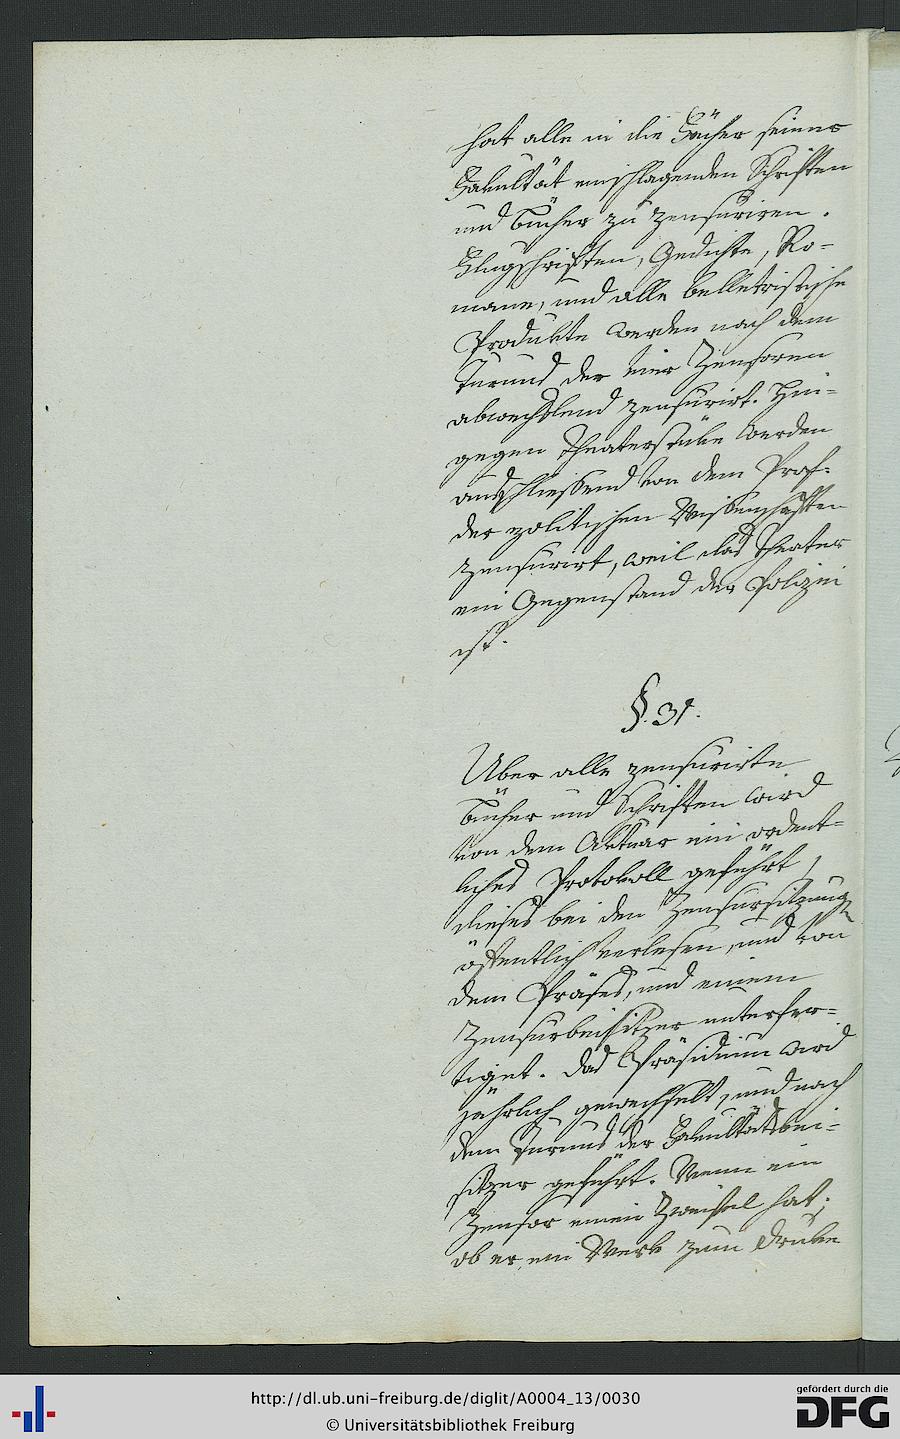 hat alle in die Fächer seiner
Fakultät einschlagenden Schriften
und Bücher zu zensuriren.
Flugschriften, Gedichte, Ro-
mane, und alle belletristische
Produkte werden nach dem
Turnus der vier Zensoren
abwechslend zensurirt. Hin-
gegen Theaterstüke werden
ausschliessend von dem Prof.
der politischen Wissenschaften
zensurirt, weil das Theater
ein Gegenstand der Polizei
ist.
§. 31.
Uber alle zensurirte
Bücher und Schriften wird
von dem Aktuar ein ordent-
liches Protokoll geführt,
dieses bei den Zensursitzungen
öffentlich verlesen, und von
dem Präses, und einem
Zensurbeisitzer unterfer-
tiget. Das Präsidium wird
jährlich gewechselt, und nach
dem Turnus der Fakultätsbei-
sitzer geführt. Wenn ein
Zensor einen Zweifel hat,
ob er ein Werk zum Druke
http://dl.ub.uni-freiburg.de/diglit/A0004_13/0030
© Universitätsbibliothek Freiburg
gefördert durch die
DFG